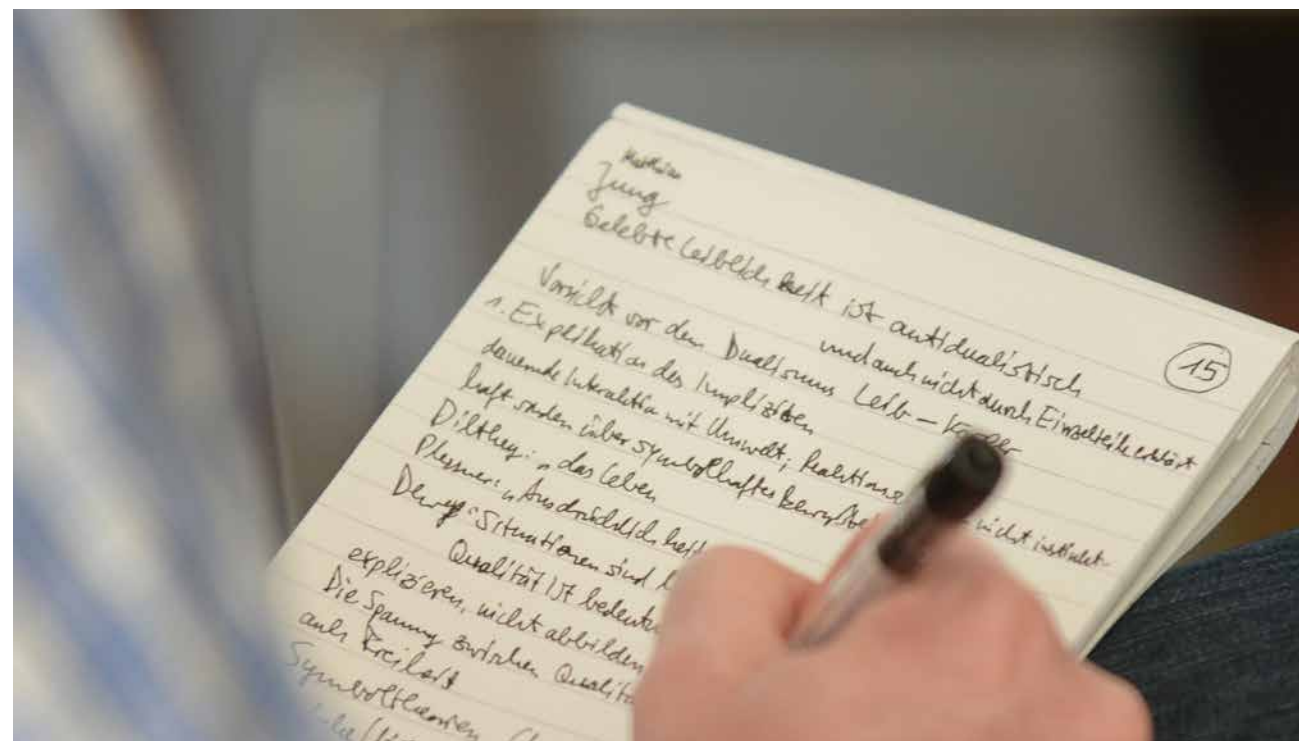 Matthias
Jung
Gelebte Leiblichkeit ist antidualistisch
und auch nicht durch Einzelteile erklärt
15
Vorsicht vor dem Dualismus Leib – Körper
1. Explikation des Impliziten
dauernde Interaktion mit Umwelt; nicht instinkt-
haft sondern über symbolhaftes
Dilthey: „das Leben
Plessner: „Ausdrücklichkeit
Dewey: Situationen sind
Qualität ist
explizieren, nicht abbilden
Die Spannung zwischen
auch Freiheit
Symboltheorien